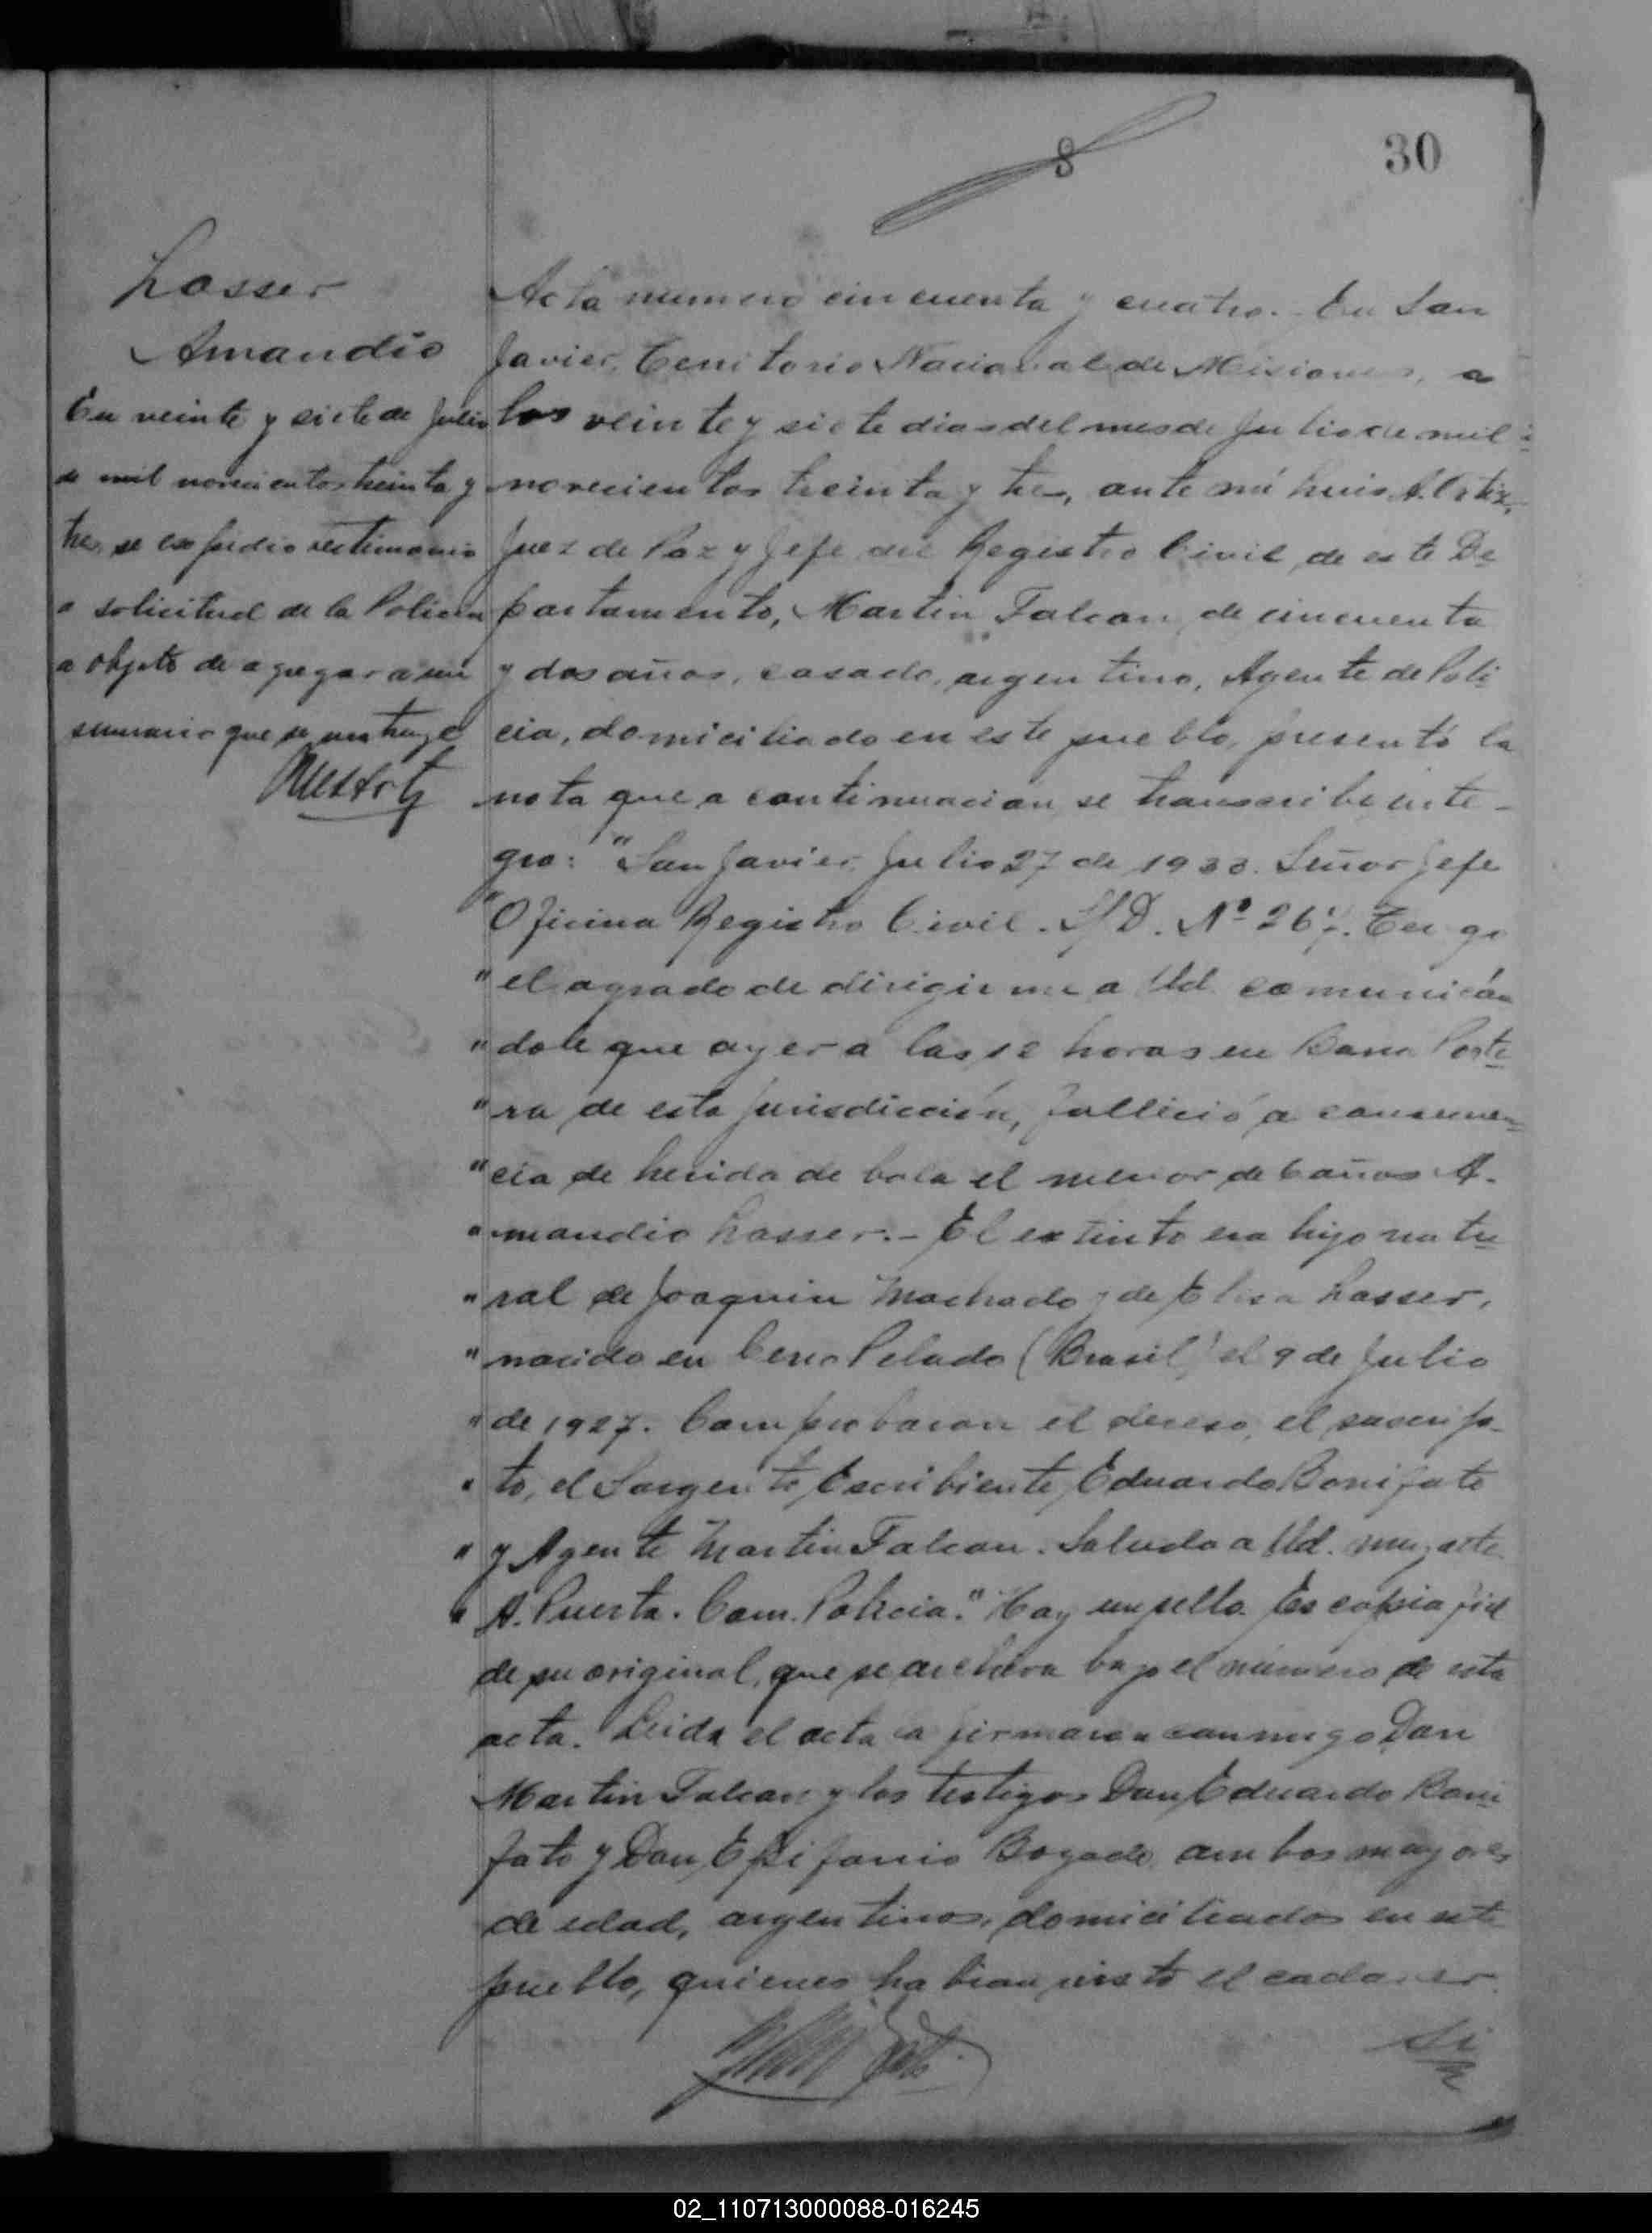 8
30
Lasser
Amandio
En veinte y siete de Julio
de mil novecientos treinta y
tres, se expidió testimonio
a solicitud de la Policia
a objeto de agregar a un
sumario que se instruye
Acta numero cincuenta y cuatro. En San
Javier, Territorio Nacional de Misiones, a
los veinte y siete dias del mes de Julio de mil
novecientos treinta y tres, ante mí Luis A. Ortiz,
Juez de Paz y Jefe del Registro Civil de este De
partamento, Martin Falcon, de cincuenta
y dos años, casado, argentino, Agente de Poli
cia, domiciliado en este pueblo, presentó la
nota que a continuacion se transcribe inte-
gra: "San Javier, Julio 27 de 1933. Señor Jefe
"Oficina Registro Civil. S/D. Nº 267. Tengo
" el agrado de dirigirme a Ud. comunicán
" dole que ayer a las 12 horas en Barra
" ra de esta jurisdicción, falleció a consecuen
" cia de herida de bala el menor de 6 años A-
" mandio Lasser.- El extinto era hijo natu
" ral de Joaquin Machado y de Elisa Lasser,
" nacido en Cerro Pelado (Brasil) el 9 de Julio
" de 1927. Comprobaron el deceso, el suscrip-
" to, el Sargento Escribiente, Eduardo Bonifato
" y Agente Martin Falcon. Saludo a Ud. muy atte.
" A. Puerta. Com. Policia." Hay un sello. Es copia fiel
de su original, que se archiva bajo el número de esta
acta. Leida el acta la firmaron conmigo Don
Martin Falcon y los testigos Don Eduardo Boni
fato y Don Epifanio Bogado, ambos mayores
de edad, argentinos, domiciliados en este
pueblo, quienes habian visto el cadaver.
02_110713000088-016245